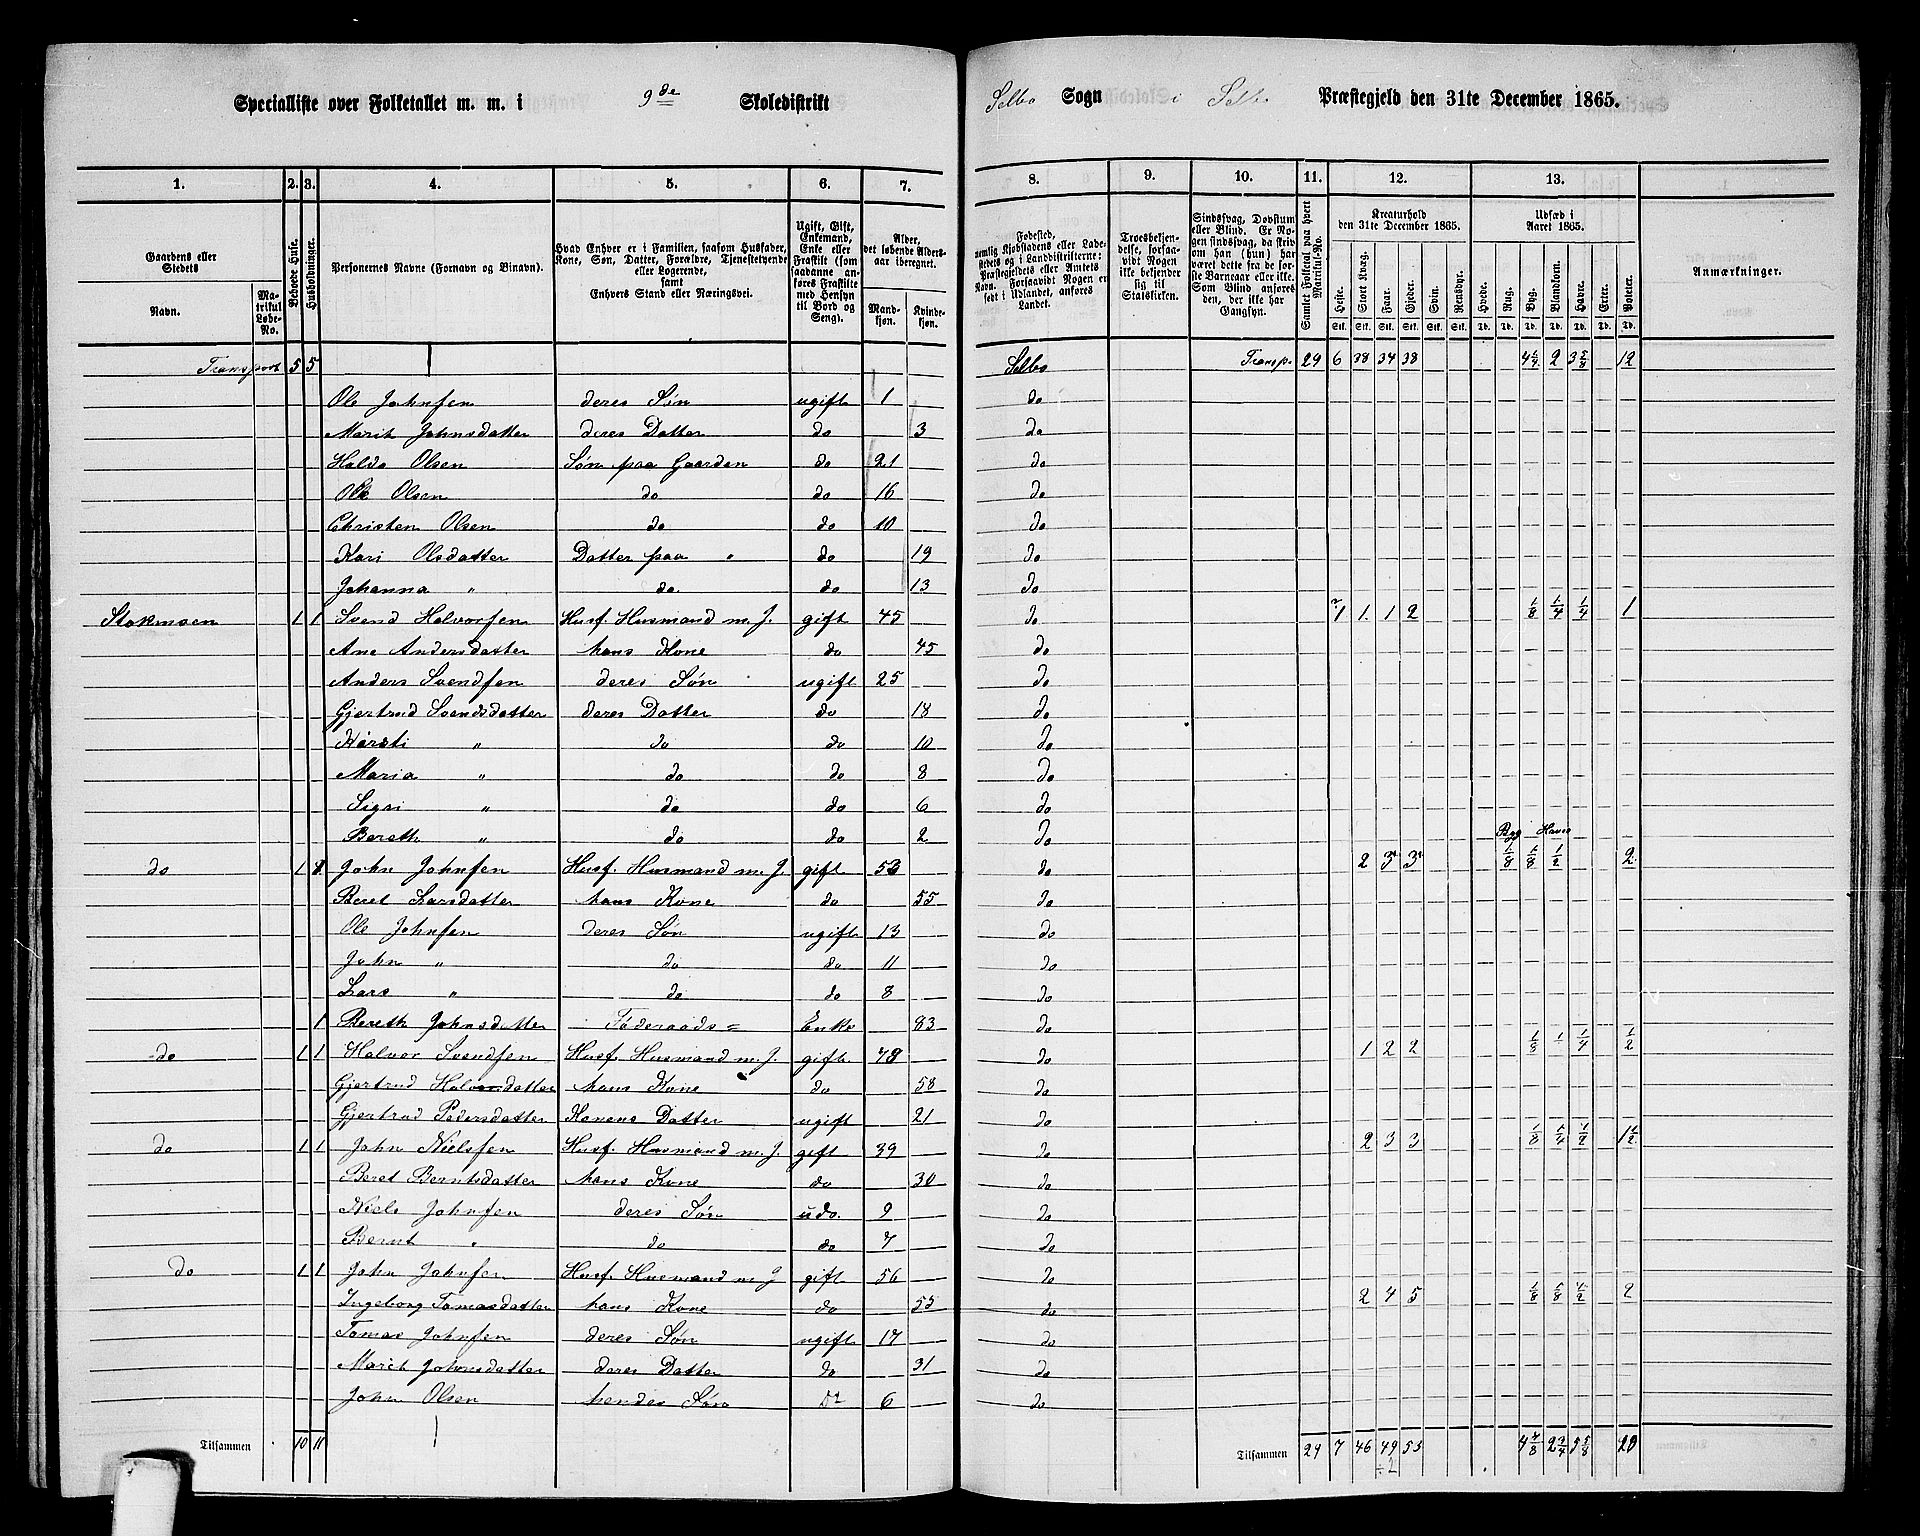 Specialliste over Folketallet m. m. i 9de Skoledistrikt Selbo Sogn i Selbo Præstegjeld den 31te December 1865.
1. 2. 3. 4. 5. 6. 7. 8. 9. 10. 11. 12. 13.
Gaardens eller Stedets Navn. Matrikul Løbe-No. Beboede Huse. Husholdninger. Personernes Navne (Fornavn og Binavn). Hvad Enhver er i Familien, saasom Husfader, Kone, Søn, Datter, Forældre, Tjenestetyende eller Logerende, samt Enhvers Stand eller Næringsvei. Ugift, Gift, Enkemand, Enke eller Fraskilt (som saadanne anføres Fraskilte med Hensyn til Bord og Seng). Alder, det løbende Alders-aar iberegnet. Mandkjøn. Kvindekjøn.
Fødested, nemlig Kjøbstadens eller Ladestedets og i Landdistrikterne: Præstegjeldets eller Amtets Navn. Forsaavidt Nogen er født i Udlandet, anføres Landet. Troesbekjendelse, forsaavidt Nogen ikke bekjender sig til Statskirken. Sindssvag, Døvstum eller Blind. Er Nogen sindssvag, da skriv om han (hun) har været dette fra de første Barneaar eller ikke. Som Blind anføres den, der ikke har Gangsyn. Samlet Folketal paa hvert Matrikul-No. Kreaturhold den 31te December 1865. Heste. Stort Kvæg. Faar. Gjeder. Svin. Rensdyr. Udsæd i Aaret 1865. Hvede. Rug. Byg. Blandkorn. Havre. Erter. Poteter. Anmærkninger.
Stk. Stk. Stk. Stk. Stk. Stk. Td. Td. Td. Td. Td. Td. Td.
Transport 5 5 Selbo Transp. 29 6 38 34 38 2 12
Ole Johnsen deres Søn ugift 1 do
Marit Johnsdatter deres Datter do 3 do
Haldo Olsen Søn paa Gaarden do 21 do
Ole Olsen do do 16 do
Christen Olsen do do 10 do
Kari Olsdatter Datter paa " do 19 do
Johanna " do do 13 do
Stokmoen 1 1 Svend Halvorsen Husf. Husmand m. J. gift 45 do 1 1 1 2 1/8 1/4 1/4 1
Ane Andersdatter hans Kone do 45 do
Anders Svendsen deres Søn ugift 25 do
Gjertrud Svendsdatter deres Datter do 18 do
Kirsti " do do 10 do
Maria " do do 8 do
Sigri " do do 6 do
Bereth " do do 2 do Byg Havre
do 1 1 John Johnsen Husf. Husmand m. J. gift 53 do 2 3 3 1/8 1/8 1/2 2
Beret Larsdatter hans Kone do 55 do
Ole Johnsen deres Søn ugift 13 do
John " do do 11 do
Lars " do do 8 do
1 Bereth Johnsdatter Føderaads = Enke 83 do
do 1 1 Halvor Svendsen Husf. Husmand m. J. gift 48 do 1 2 2 1/8 1/4 1/2
Gjertrud Halvorsdatter hans Kone do 58 do
Gjertrud Pedersdatter Konens Datter ugift 21 do
do 1 1 John Nielsen Husf. Husmand m. J. gift 39 do 2 3 3 1/8 1/4 1/2 1 1/2
Beret Berntsdatter hans Kone do 30 do
Niels Johnsen deres Søn udo. 9 do
Bernt " do do 7 do
do 1 1 John Johnsen Husf. Husmand m J gift 56 do
Ingeborg Tomasdatter hans Kone do 55 do 2 4 5 1/8 5/8 2
Tomas Johnsen deres Søn ugift 17 do
Marit Johnsdatter deres Datter do 31 do
John Olsen hendes Søn do 6 do
Tilsammen 10 11 Tilsammen 29 7 46 49 53 4 4/8 2 3/4 5 5/8 20
÷2